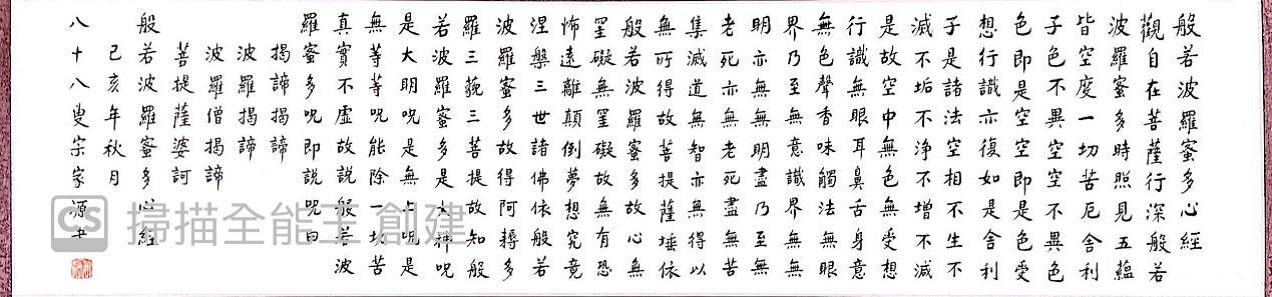 般若波羅蜜多心經
觀自在菩薩行深般若
波羅蜜多時照見五蘊
皆空度一切苦厄舍利
子色不異空空不異色
色即是空空即是色受
想行識亦復如是舍利
子是諸法空相不生不
滅不垢不淨不增不減
是故空中無色無受想
行識無眼耳鼻舌身意
無色聲香味觸法無眼
界乃至無意識界無無
明亦無無明盡乃至無
老死亦無老死盡無苦
集滅道無智亦無得以
無所得故菩提薩埵依
般若波羅蜜多故心無
罣礙無罣礙故無有恐
怖遠離顛倒夢想究竟
涅槃三世諸佛依般若
波羅蜜多故得阿耨多
羅三藐三菩提故知般
若波羅蜜多是大神呪
是大明呪是無上呪是
無等等呪能除一切苦
真實不虛故說般若波
羅蜜多呪即說呪曰
揭諦揭諦
波羅揭諦
波羅僧揭諦
菩提薩婆訶
般若波羅蜜多心經
己亥年秋月
八十八叟宗家源书
CS 掃描全能王 創建